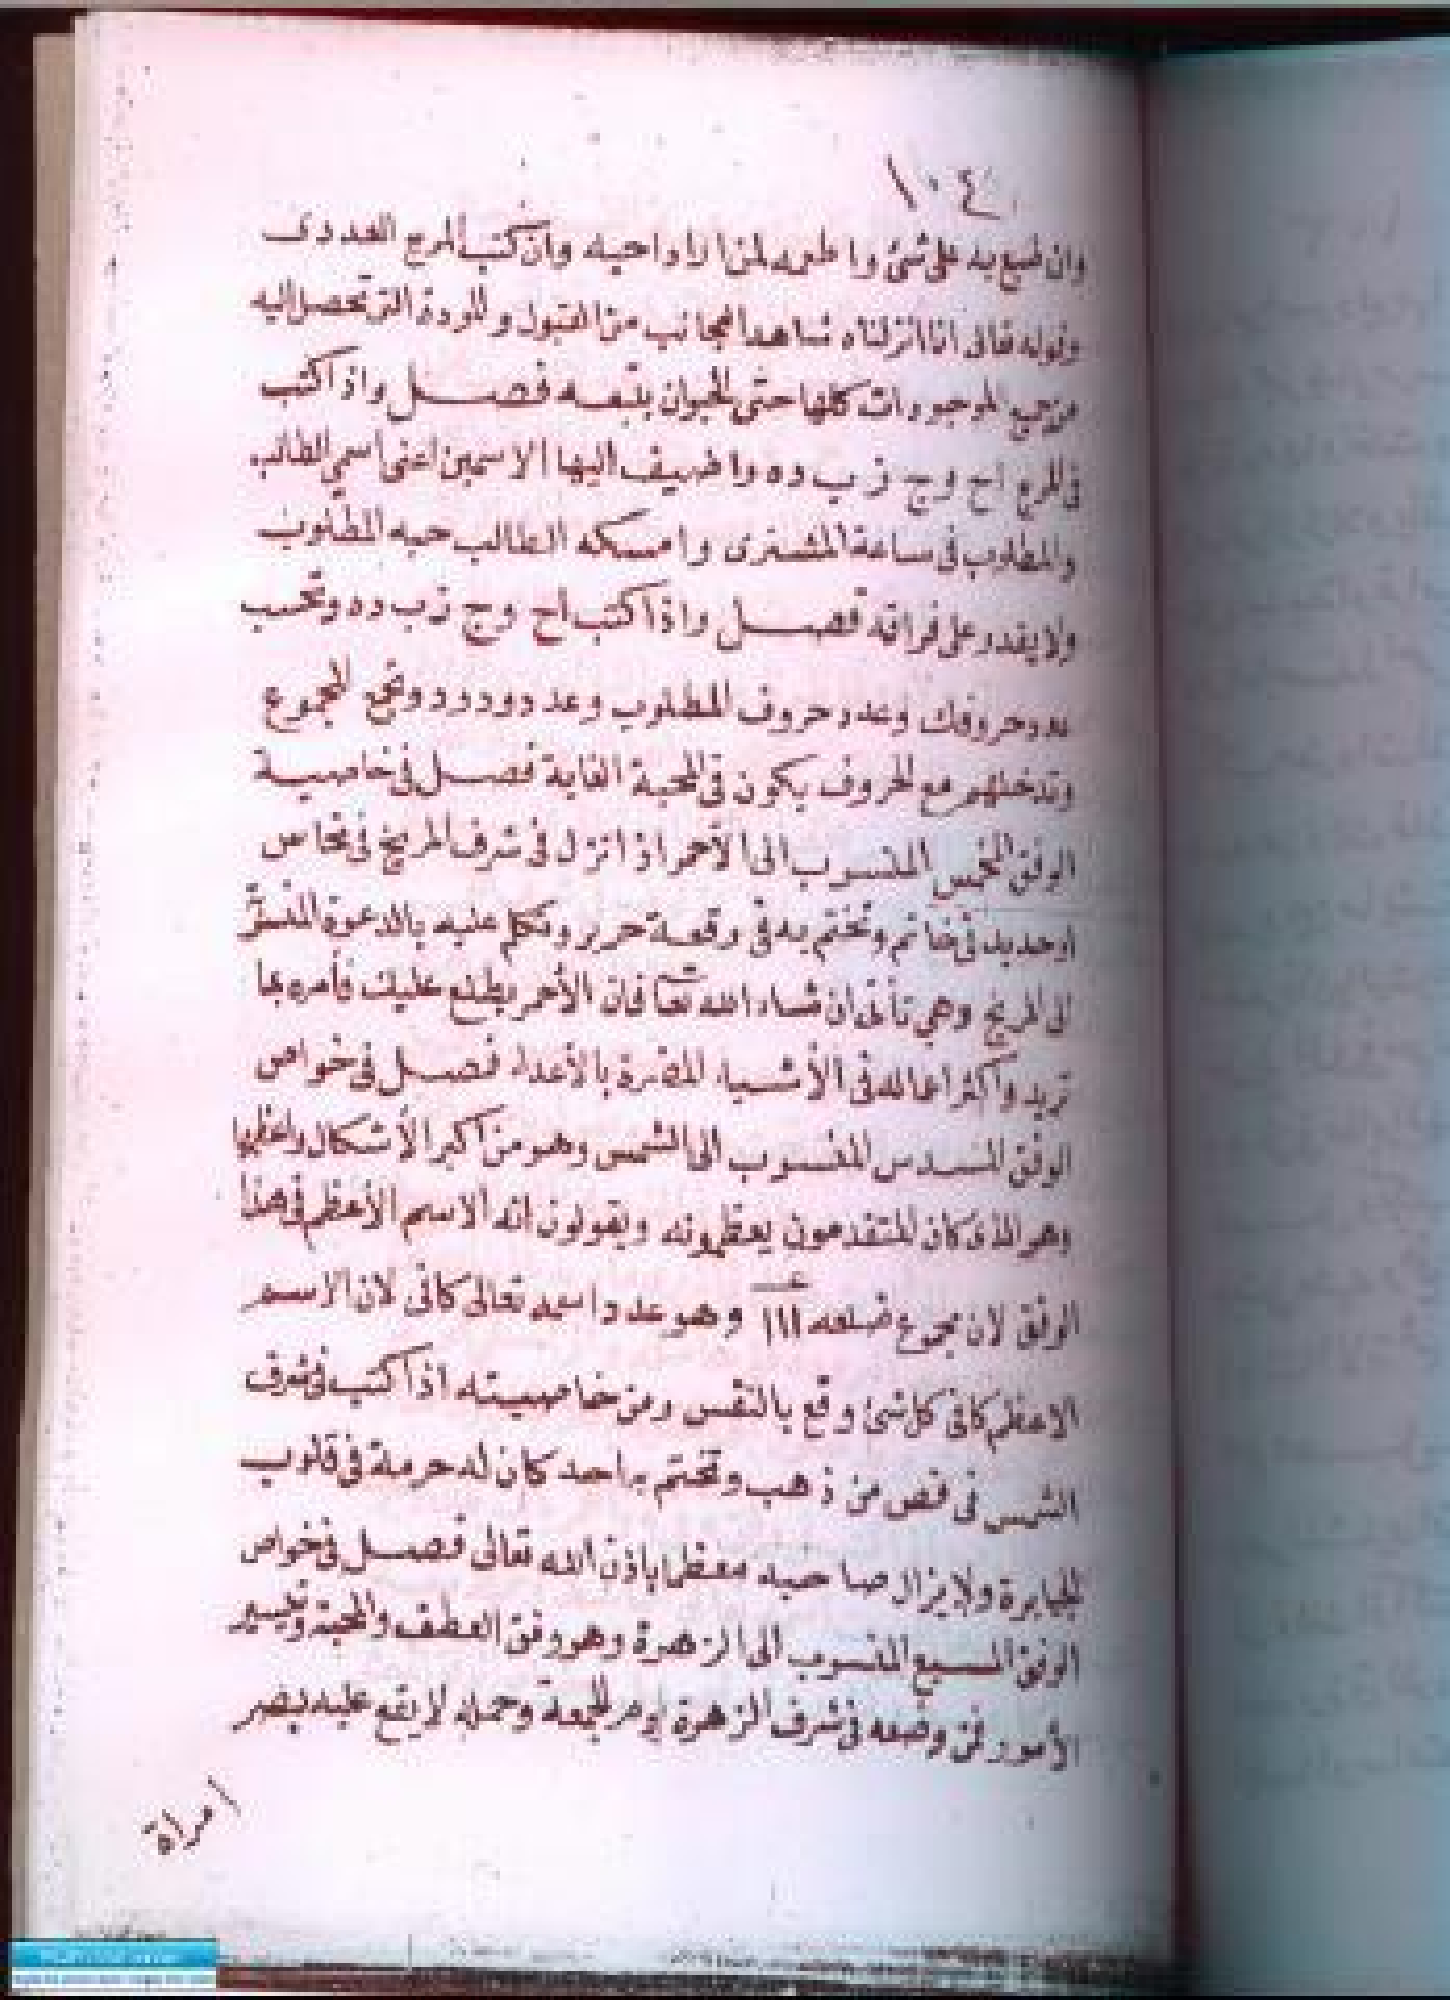 ١٠٤
وان طبع به على شئ واطعمه لمن اراد احبه وان كتب المربع العددى
وقوله تعالى انا انزلناه شاهد العجائب من القبول والمودة التى تحصل اليه
من جميع الموجودات كلها حتى الحيوان يتبعه فصل واذا كتب
فى المربع اح وج زب ده واضيف اليها الاسمين اعنى اسمى الطالب
والمطلوب فى ساعة المشترى وامسكه الطالب حبه المطلوب
ولا يقدر على فراقه فصل واذا كتب اح وج زب ده وتحسب
عدد حروفك وعدد حروف المطلوب وعدد ودود وتجمع المجموع
وتدخلهم مع الحروف يكون فى المحبة الغاية فصل فى خاصية
الوفق المخمس المنسوب الى الأحمر اذا نزل فى شرف المريخ فى نحاس
او حديد فى خاتم وتختم به فى رقعة حرير وتكلم عليه بالدعوة المنسوبة
الى المريخ وهي تأتى ان شاء الله تعا فان الأحمر يطلع عليك فأمره بما
تريد وأكثر اعماله فى الأشياء المضرة بالأعداء فصل فى خواص
الوفق المسدس المنسوب الى الشمس وهو من اكبر الأشكال واعظمها
وهو الذى كان المتقدمون يعظمونه ويقولون انه الاسم الأعظم فى هذا
الوفق لان مجموع ضلعه ١١١ وهو عدد اسمه تعالى كافى لان الاسم
الاعظم كافى كل شئ وقع بالنفس ومن خاصيته اذا كتب فى شرف
الشمس فى فص من ذهب وتختم به احد كان له حرمة فى قلوب
الجبابرة ولا يزال صاحبه معظما باذن الله تعالى فصل فى خواص
الوفق المسبع المنسوب الى الزهرة وهو وفق العطف والمحبة وتيسير
الأمور فمن وضعه فى شرف الزهرة يوم الجمعة وحمله لا يقع عليه بصر
امراة